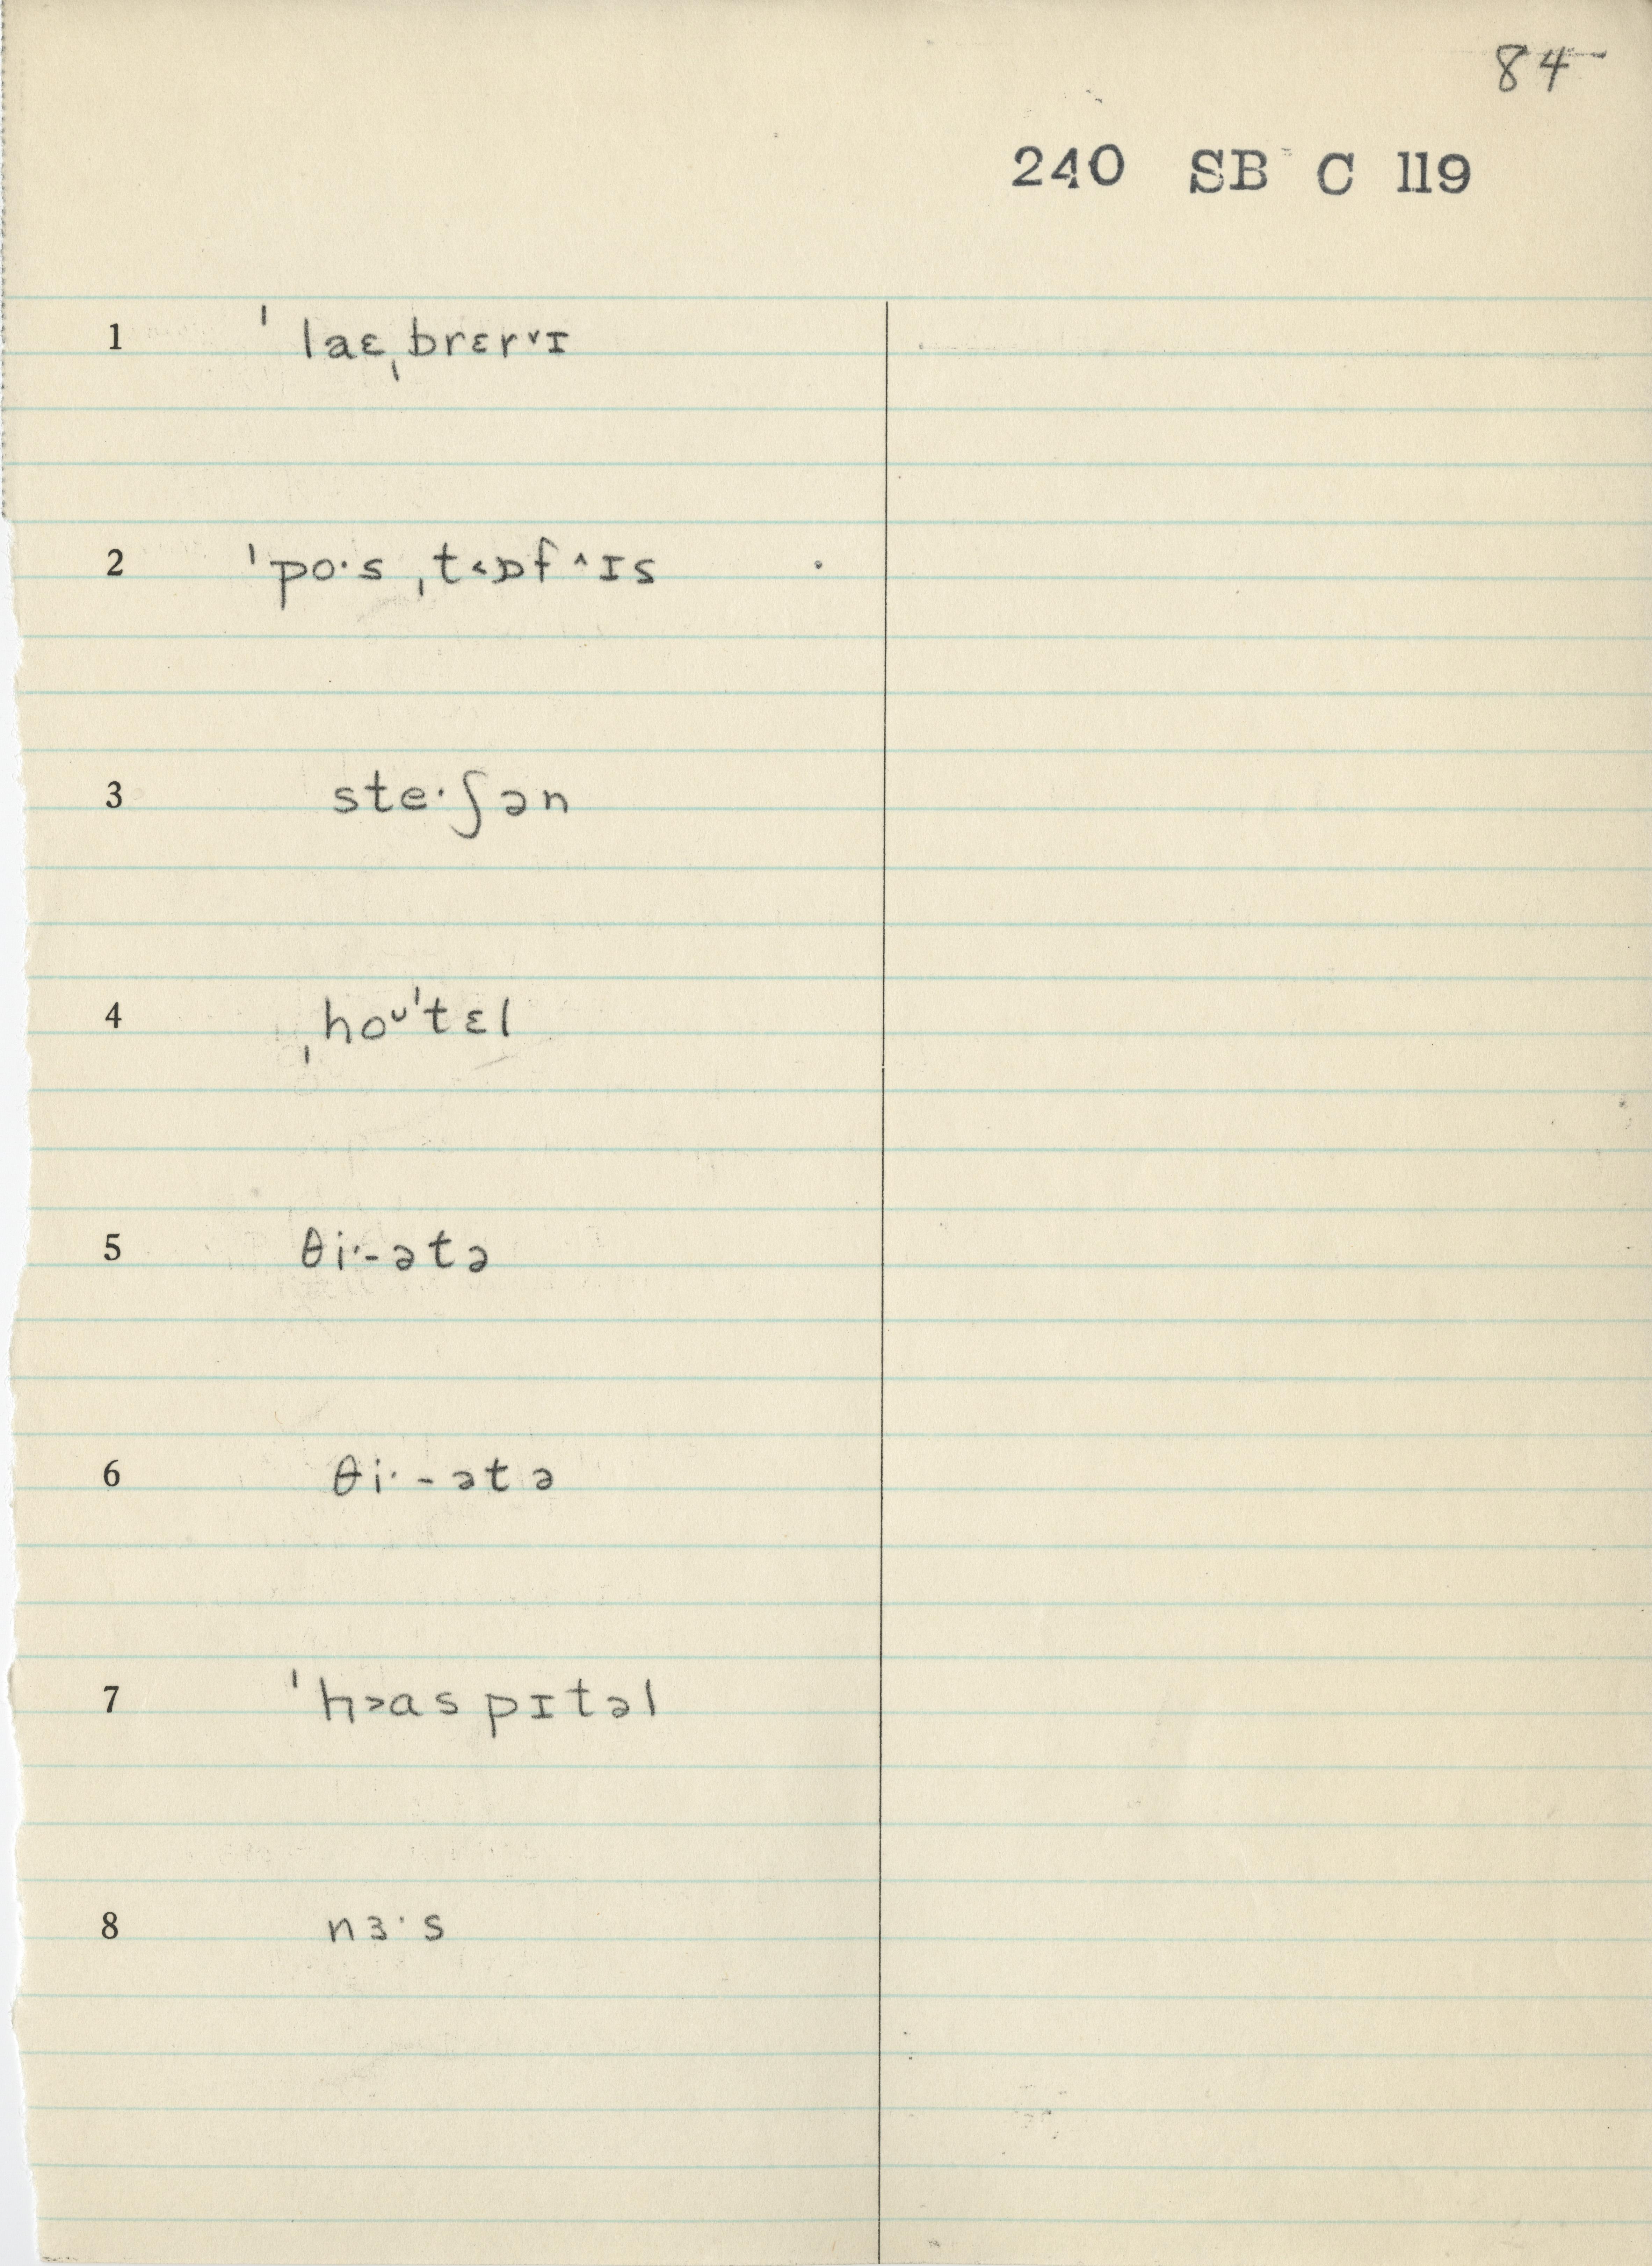 84
240 SB C 119
1 ˈlaɛˌbrɛr˅ɪ
2 ˈpo·sˌt˂ɒf˄ɪs
3 ste·ʃən
4 ˌhoᴗˈtɛl
5 θi·-ətə
6 θi·-ətə
7 ˈh˃aspɪtəl
8 nɜ·s